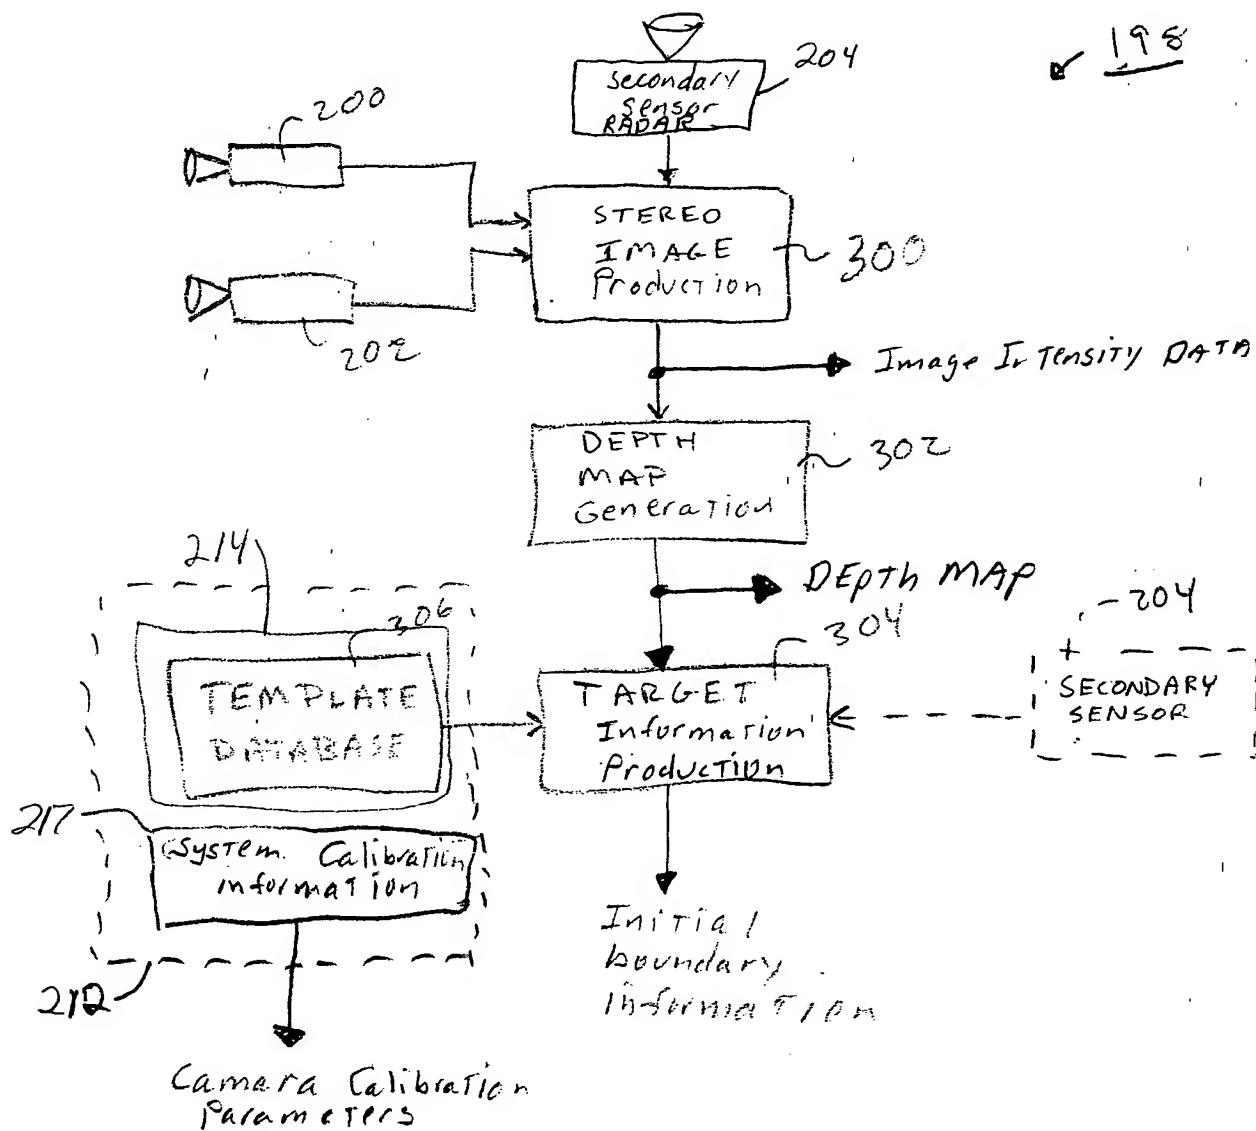 198
204
Secondary
Sensor
RADAR
200
STEREO
IMAGE
Production
300
202
Image Intensity DATA
DEPTH
MAP
Generation
302
214
DEpth MAP
306
304
204
TEMPLATE
DATABASE
TARGET
Information
Production
SECONDARY
SENSOR
217
System Calibration
information
Initial
boundary
information
212
Camera Calibration
Parameters